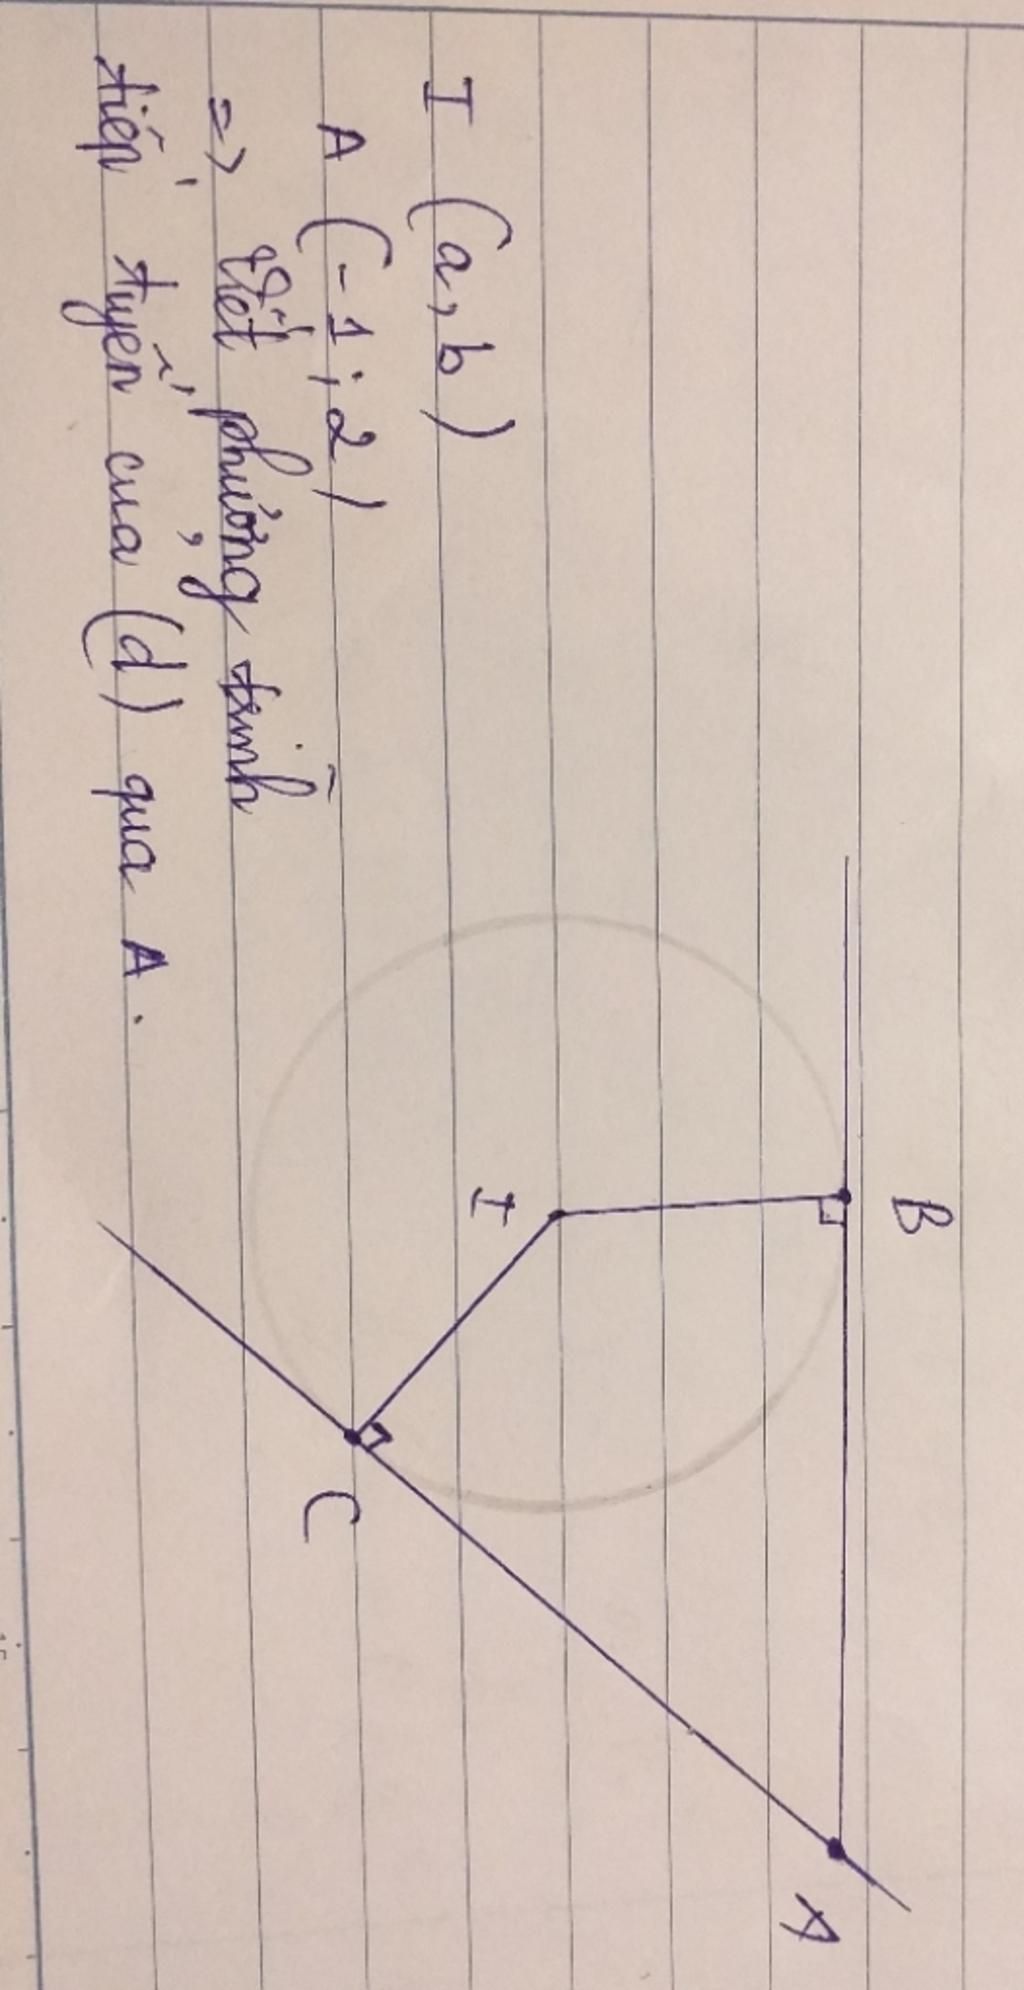 I (a, b)
A (-1; 2)
=> Viết phương trình
tiếp tuyến của (d) qua A.
B
I
C
A